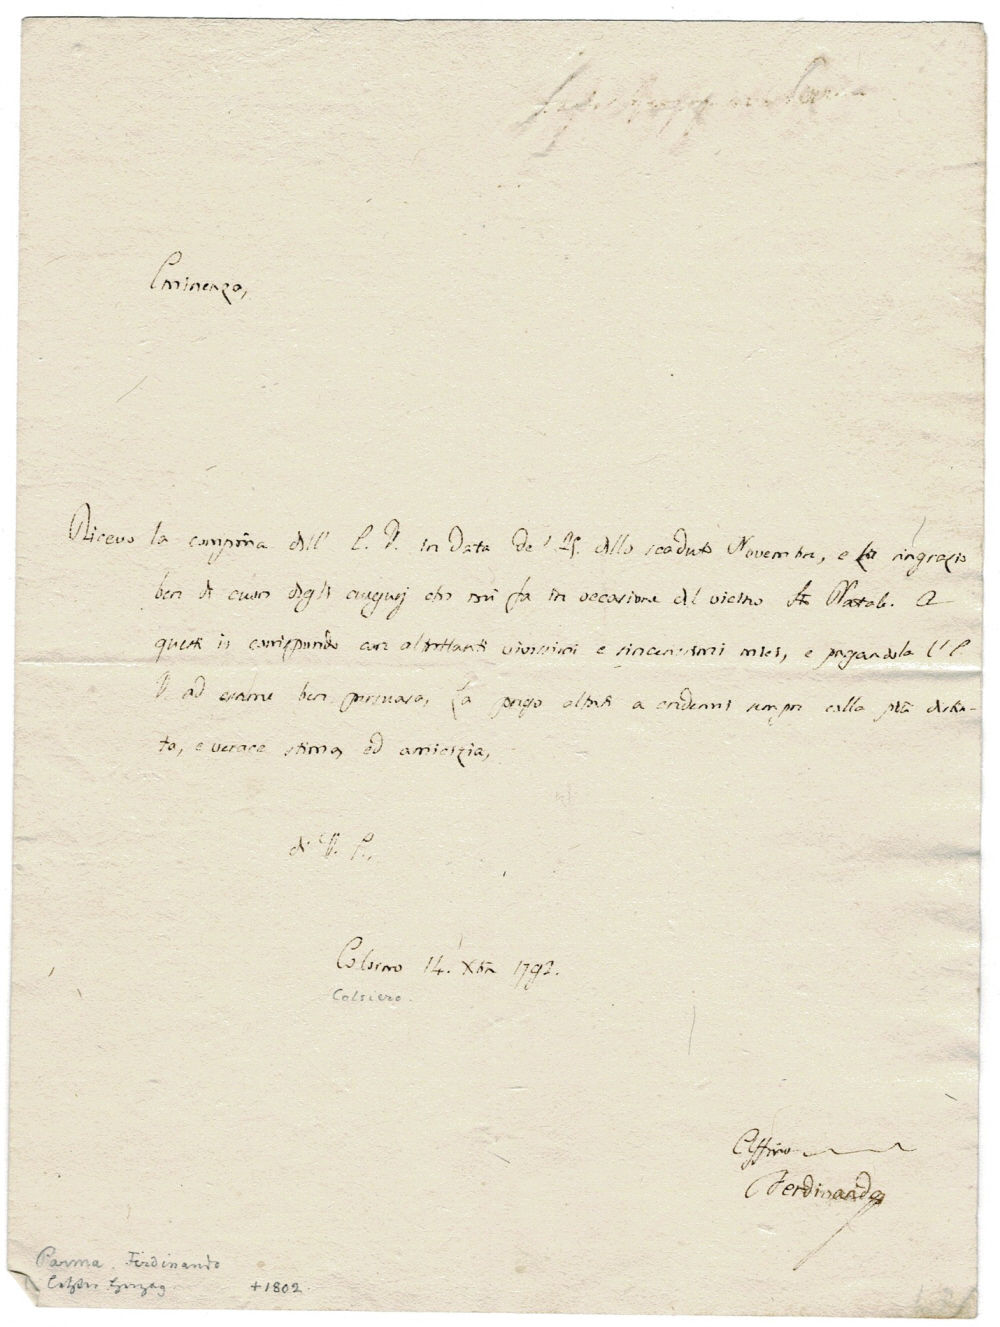 Eminenza,
Ricevo la compita dell' E. V. in data de' 25. dello scaduto Novembre, e la ringrazio
ben di cuore degli augurj che mi fa in occasione del vicino Sto Natale. A
questi io corrispondo con altrettanti vivissimi e sincerissimi miei, e pregandola l' E.
V. ad esserne ben persuasa, La prego altresì a credermi sempre colla più distin-
ta, e verace stima, ed amicizia,
di V. E.,
Colorno 14. Xbre 1792.
Colsiero.
Affmo
Ferdinando
Parma. Ferdinando
Letzter Herzog +1802.